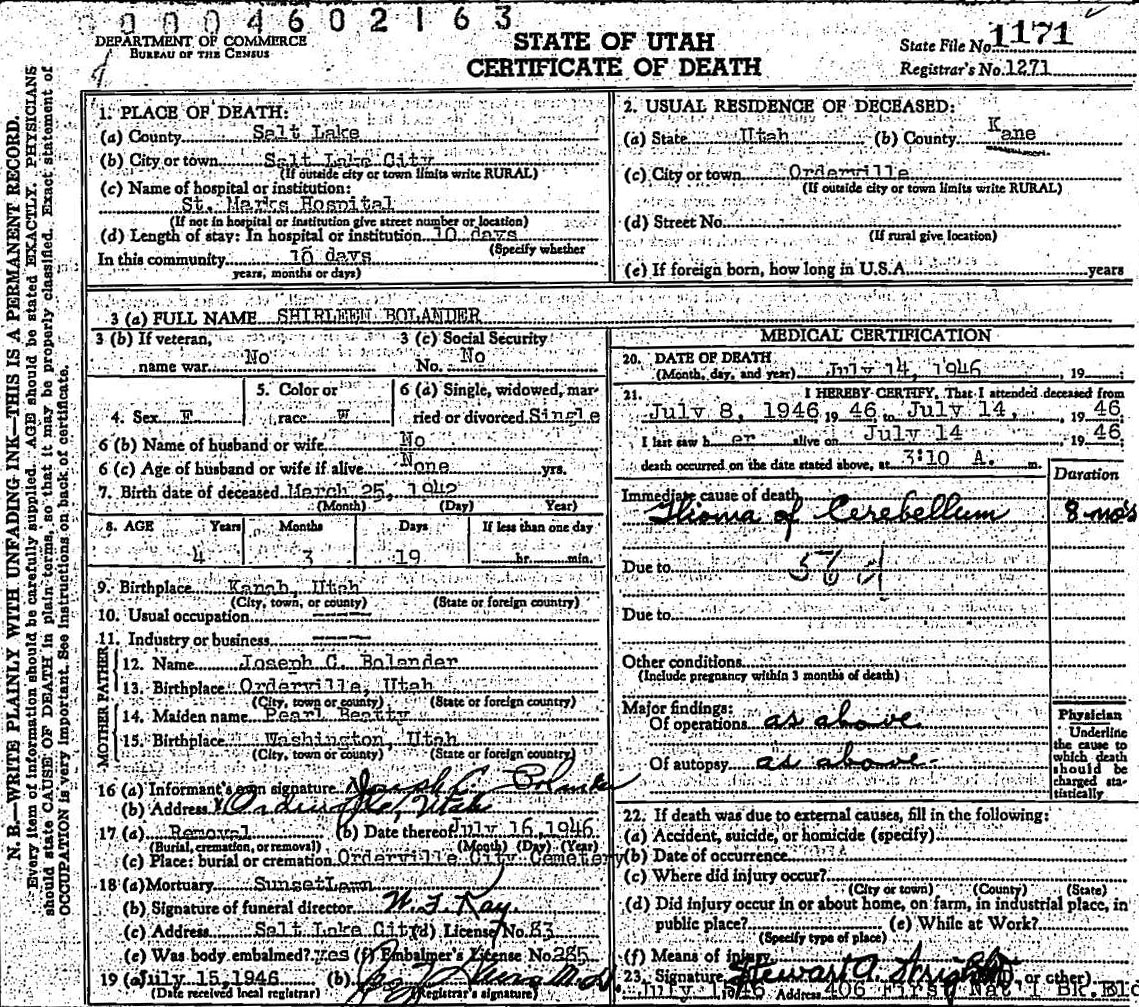 0004602163
DEPARTMENT OF COMMERCE
BUREAU OF THE CENSUS
STATE OF UTAH
CERTIFICATE OF DEATH
State File No. 1171
Registrar's No. 1271
N. B.—WRITE PLAINLY WITH UNFADING INK—THIS IS A PERMANENT RECORD.
Every item of information should be carefully supplied. AGE should be stated EXACTLY. PHYSICIANS
should state CAUSE OF DEATH in plain terms, so that it may be properly classified. Exact statement of
OCCUPATION is very important. See instructions on back of certificate.
1. PLACE OF DEATH:
(a) County Salt Lake
(b) City or town Salt Lake City
(If outside city or town limits write RURAL)
(c) Name of hospital or institution:
St. Marks Hospital
(If not in hospital or institution give street number or location)
(d) Length of stay: In hospital or institution 10 days
(Specify whether
In this community 10 days
years, months or days)
2. USUAL RESIDENCE OF DECEASED:
(a) State Utah (b) County Kane
(c) City or town Orderville
(If outside city or town limits write RURAL)
(d) Street No.
(If rural give location)
(e) If foreign born, how long in U.S.A. years
3 (a) FULL NAME SHIRLEEN BOLANDER
3 (b) If veteran,
name war No
3 (c) Social Security
No. No
4. Sex F
5. Color or
race W
6 (a) Single, widowed, mar-
ried or divorced Single
6 (b) Name of husband or wife No
6 (c) Age of husband or wife if alive None yrs.
7. Birth date of deceased March 25, 1942
(Month) (Day) Year)
8. AGE Years Months Days If less than one day
4 3 19 hr. min.
9. Birthplace Kanab, Utah
(City, town, or county) (State or foreign country)
10. Usual occupation ----
11. Industry or business ----
FATHER
12. Name Joseph C. Bolander
13. Birthplace Orderville, Utah
(City, town, or county) (State or foreign country)
MOTHER
14. Maiden name Pearl Beatty
15. Birthplace Washington, Utah
(City, town, or county) (State or foreign country)
16 (a) Informant's own signature Joseph C. Bolander
(b) Address Orderville, Utah
17 (a) Removal (b) Date thereof July 16, 1946
(Burial, cremation, or removal) (Month) (Day) (Year)
(c) Place: burial or cremation Orderville City Cemetery
18 (a) Mortuary SunsetLawn
(b) Signature of funeral director
(c) Address Salt Lake City (d) License No. 83
(e) Was body embalmed? yes (f) Embalmer's License No. 285
19 (a) July 15, 1946 (b)
(Date received local registrar) (Registrar's signature)
MEDICAL CERTIFICATION
20. DATE OF DEATH
(Month, day, and year) July 14, 1946 19
21. I HEREBY CERTIFY, That I attended deceased from
July 8, 1946 19 46 to July 14, 19 46
I last saw h er alive on July 14 19 46
death occurred on the date stated above, at 3:10 A. m.
Duration
Immediate cause of death
Glioma of Cerebellum 8 mo's
Due to
Due to
Other conditions
(Include pregnancy within 3 months of death)
Major findings:
Of operations as above
Of autopsy as above
Physician
Underline
the cause to
which death
should be
charged sta-
tistically
22. If death was due to external causes, fill in the following:
(a) Accident, suicide, or homicide (specify)
(b) Date of occurrence
(c) Where did injury occur?
(City or town) (County) (State)
(d) Did injury occur in or about home, on farm, in industrial place, in
public place? (e) While at Work?
(Specify type of place)
(f) Means of injury
23. Signature Stewart A. Wright or other)
Address 406 First Nat'l Bk